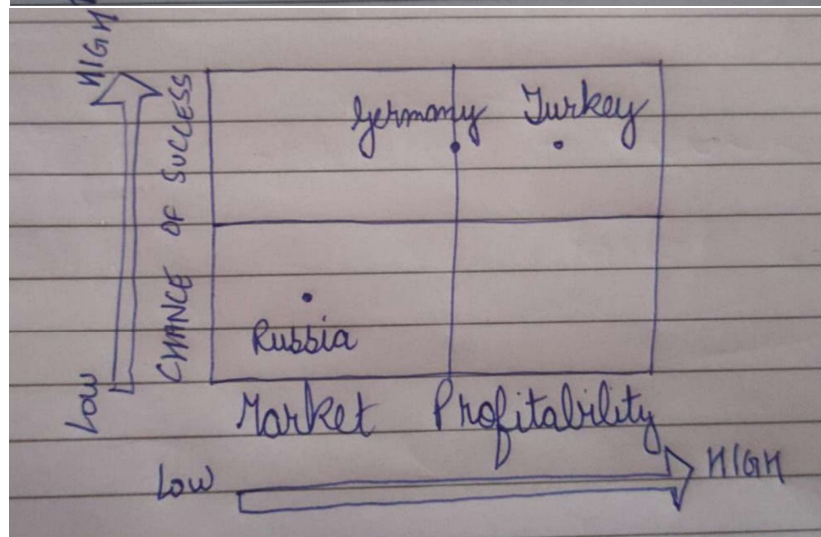 HIGH
CHANCE OF SUCCESS
Low
Germany
Turkey
Russia
Market Profitability
Low
HIGH